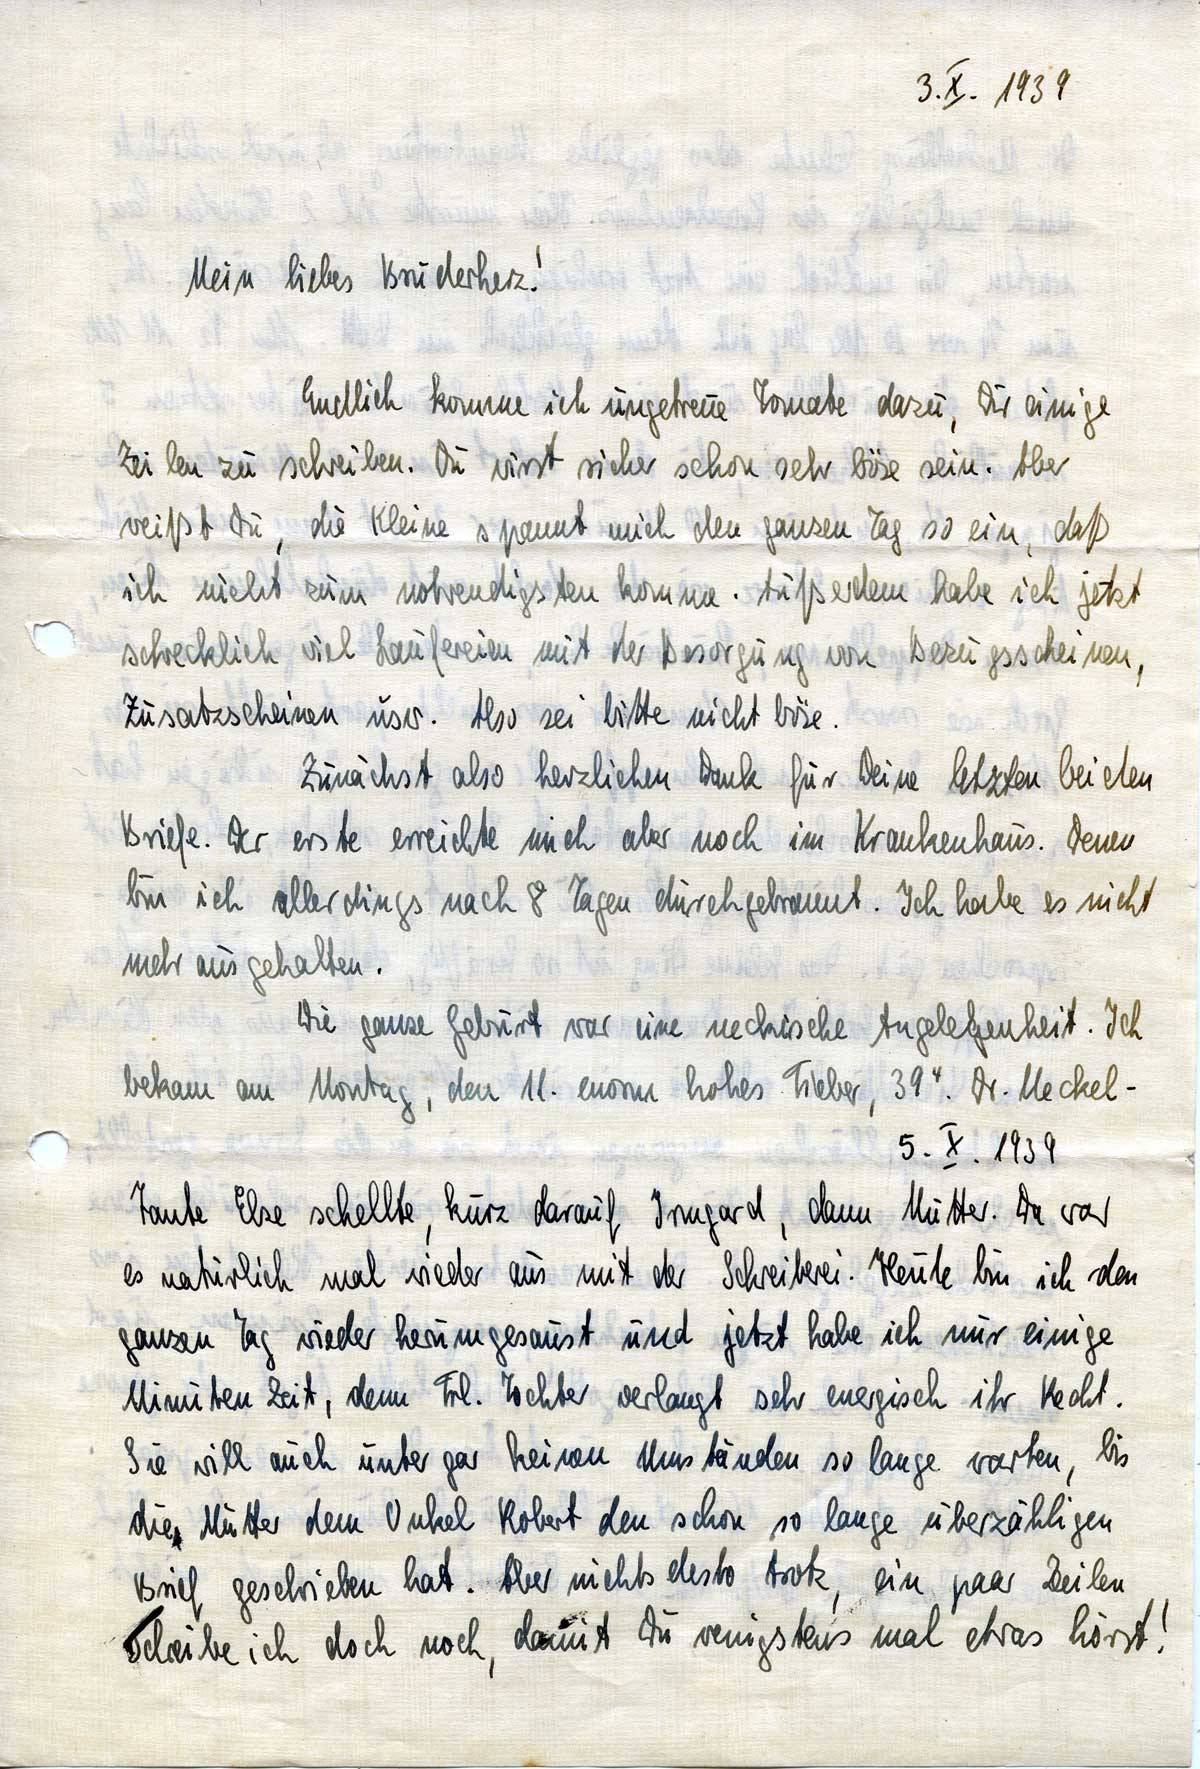 3.X. 1939
Mein liebes Bruderherz!
Endlich komme ich ungetreue Tomate dazu, Dir einige
Zeilen zu schreiben. Du wirst sicher schon sehr böse sein. Aber
weißt Du, die Kleine spannt mich den ganzen Tag so ein, daß
ich nicht zum notwendigsten komme. Außerdem habe ich jetzt
schrecklich viel Laufereien mit der Besorgung von Bezugsscheinen,
Zusatzscheinen usw. Also sei bitte nicht böse.
Zunächst also herzlichen Dank für Deine letzten beiden
Briefe. Der erste erreichte mich aber noch im Krankenhaus. Denen
bin ich allerdings nach 8 Tagen durchgebrannt. Ich habe es nicht
mehr ausgehalten.
Die ganze Geburt war eine neckische Angelegenheit. Ich
bekam am Montag, den 11. enorm hohes Fieber, 39⁴. Dr. Meckel-
5. X. 1939
Tante Else schellte, kurz darauf Irmgard, dann Mutter. Da war
es natürlich mal wieder aus mit der Schreiberei. Heute bin ich den
ganzen Tag wieder herumgesaust und jetzt habe ich nur einige
Minuten Zeit, denn Frl. Tochter verlangt sehr energisch ihr Recht.
Sie will auch unter gar keinen Umständen so lange warten, bis
die Mutter dem Onkel Robert den schon so lange überzähligen
Brief geschrieben hat. Aber nichts desto trotz, ein paar Zeilen
schreibe ich doch noch, damit Du wenigstens mal etwas hörst!